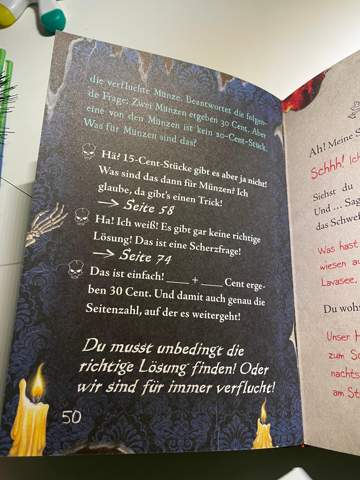 die verfluchte Münze. Beantwortet die folgen-
de Frage: Zwei Münzen ergeben 30 Cent. Aber
eine von den Münzen ist kein 20-Cent-Stück.
Was für Münzen sind das?
Hä? 15-Cent-Stücke gibt es aber ja nicht!
Was sind das dann für Münzen? Ich
glaube, da gibt's einen Trick!
→ Seite 58
Ha! Ich weiß! Es gibt gar keine richtige
Lösung! Das ist eine Scherzfrage!
→ Seite 74
Das ist einfach! ____ + ____ Cent erge-
ben 30 Cent. Und damit auch genau die
Seitenzahl, auf der es weitergeht!
Du musst unbedingt die
richtige Lösung finden! Oder
wir sind für immer verflucht!
50
Ah! Meine S
Schhh! Ich
Siehst du
Und ... Sag
das Schwef
Was hast
wiesen au
Lavasee.
Du wohs
Unser H
zum Sc
nachts
am St